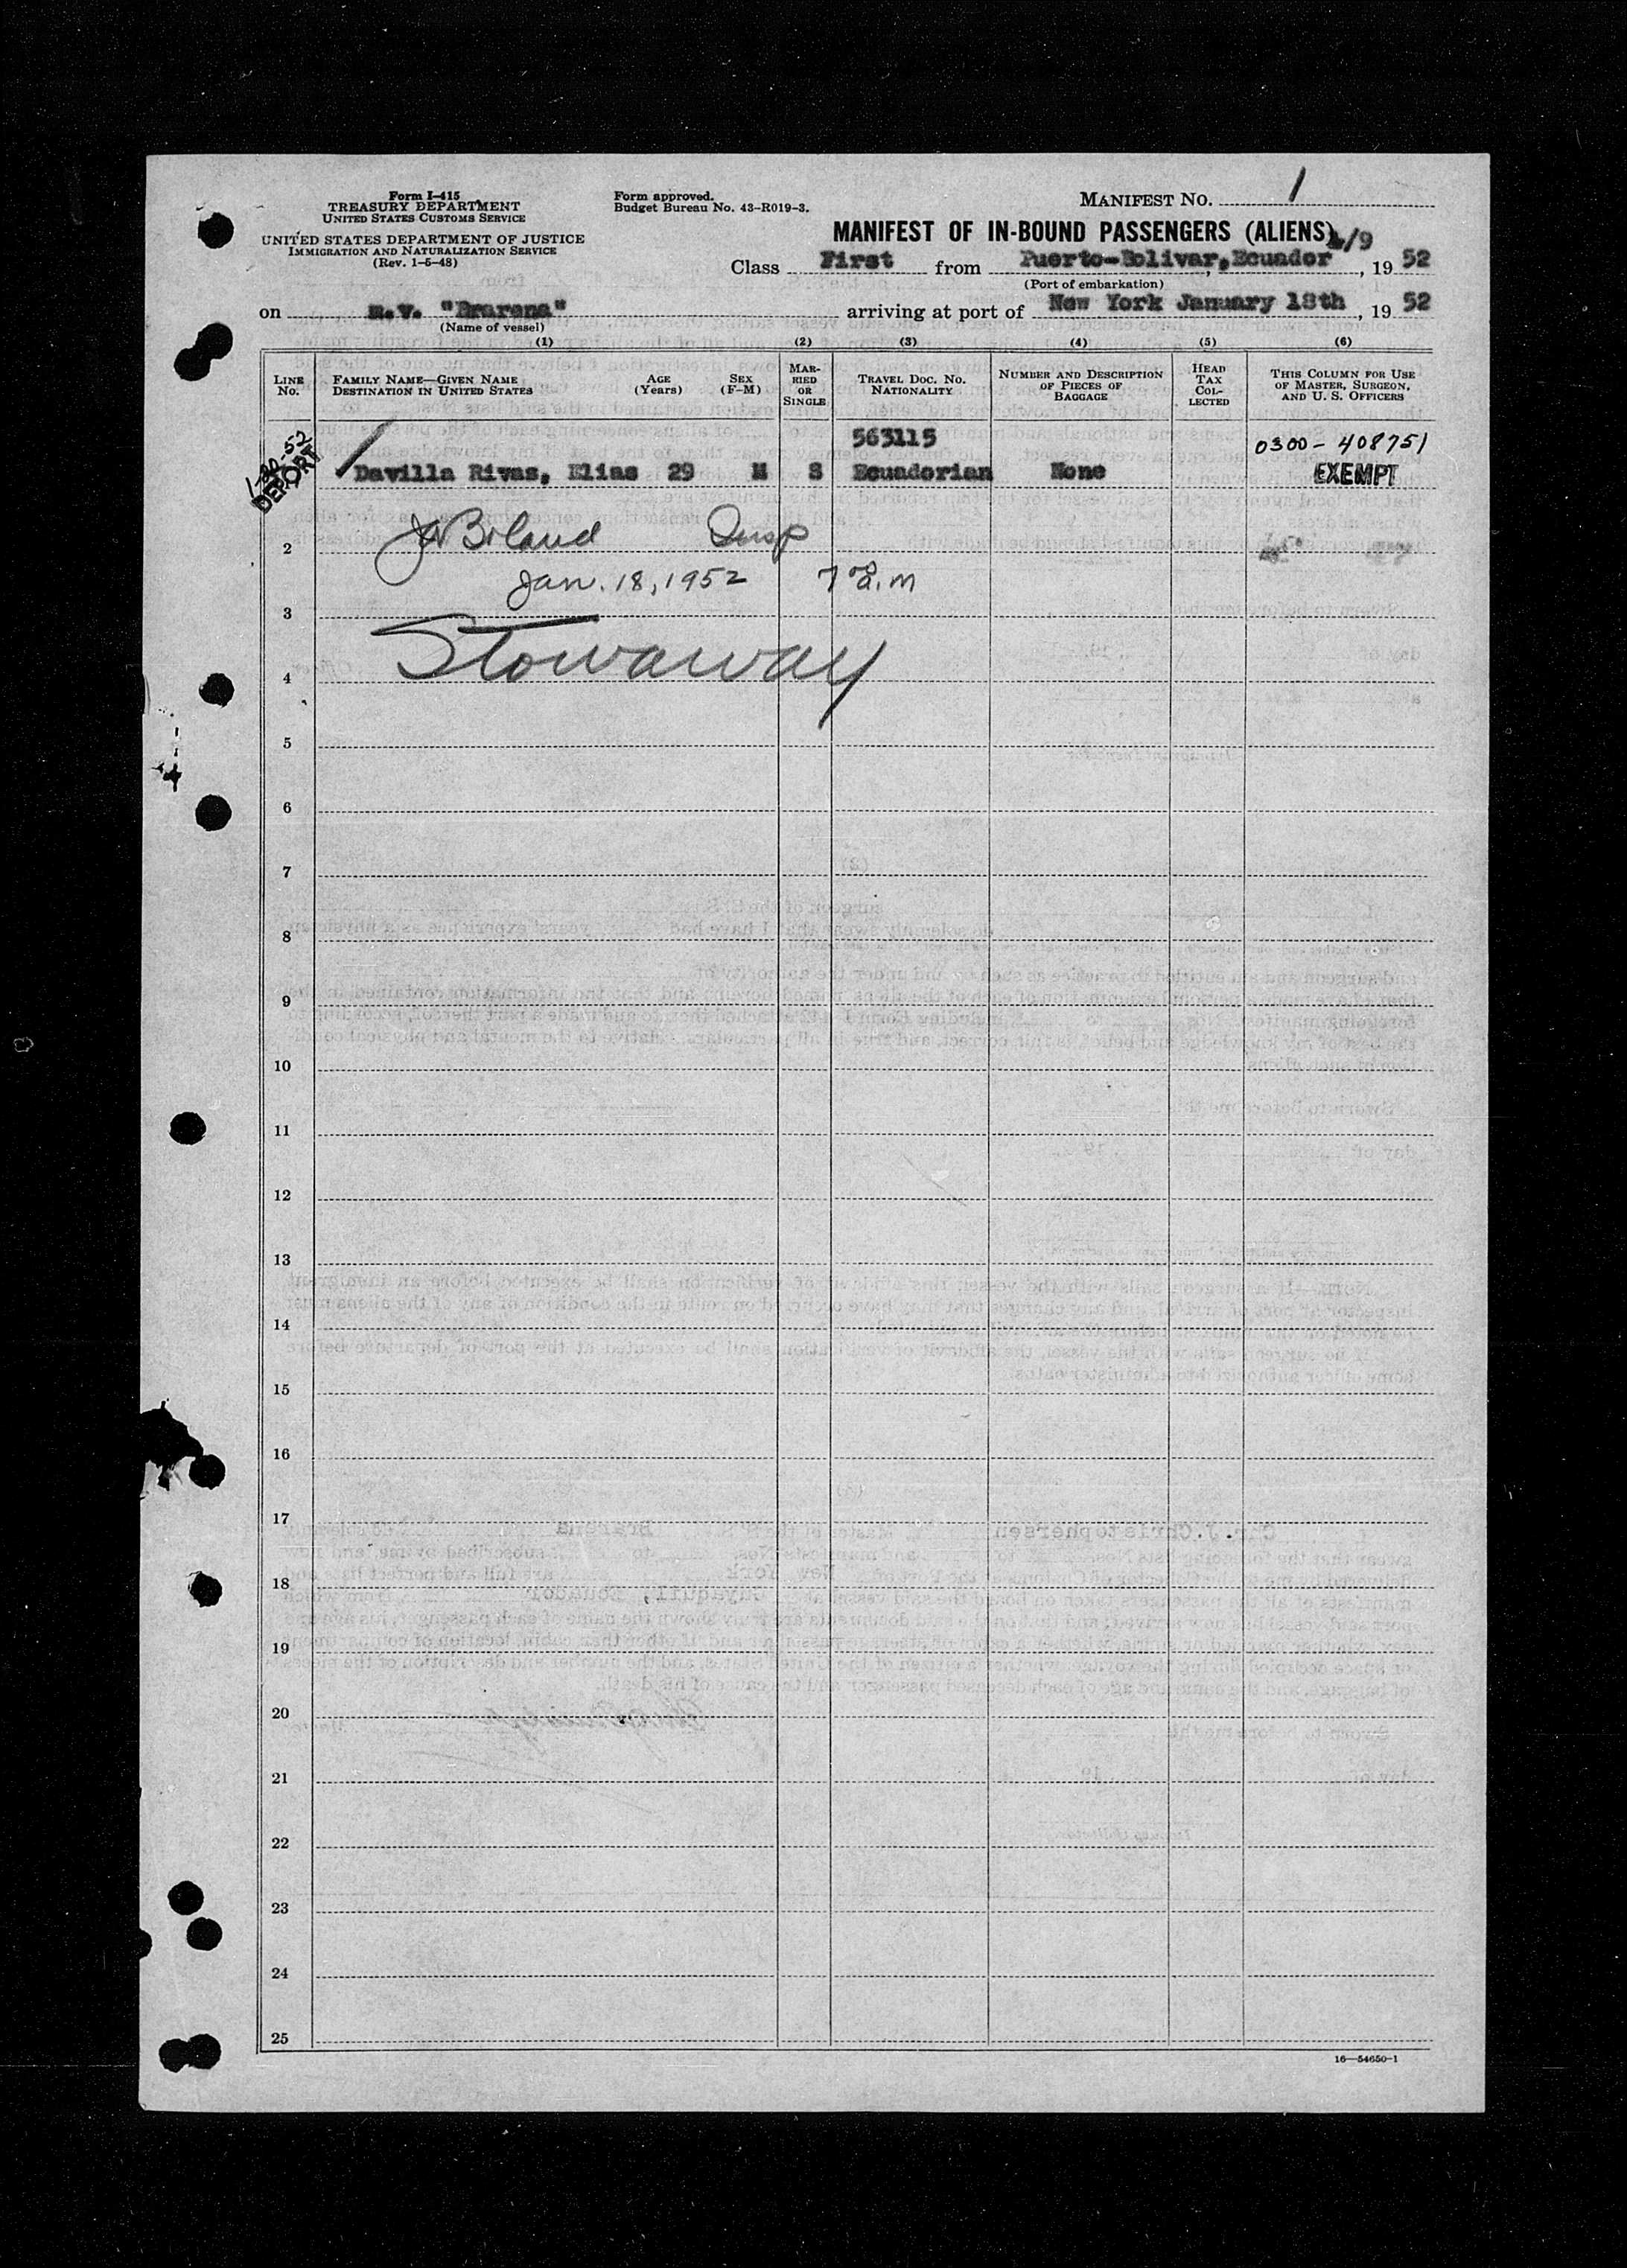 Form I-415
TREASURY DEPARTMENT
UNITED STATES CUSTOMS SERVICE
UNITED STATES DEPARTMENT OF JUSTICE
IMMIGRATION AND NATURALIZATION SERVICE
(Rev. 1-5-48)
Form approved.
Budget Bureau No. 43-R019-3.
MANIFEST NO. 1
MANIFEST OF IN-BOUND PASSENGERS (ALIENS)
Class First from Puerto-Bolivar, Ecuador /9, 19 52
(Port of embarkation)
on m.v. "Brarena" arriving at port of New York January 18th, 19 52
(Name of vessel)
(1) (2) (3) (4) (5) (6)
LINE NO.
FAMILY NAME—GIVEN NAME
DESTINATION IN UNITED STATES
AGE (Years)
SEX (F-M)
MARRIED OR SINGLE
TRAVEL DOC. NO.
NATIONALITY
NUMBER AND DESCRIPTION OF PIECES OF BAGGAGE
HEAD TAX COLLECTED
THIS COLUMN FOR USE OF MASTER, SURGEON, AND U. S. OFFICERS
1-30-52
DEPORT
563115 0300-408751
Davilla Rivas, Elias 29 M S Ecuadorian None EXEMPT
2 Insp
Jan. 18, 1952 7 00 a.m
3
Stowaway
4
5
6
7
8
9
10
11
12
13
14
15
16
17
18
19
20
21
22
23
24
25
16—54650-1